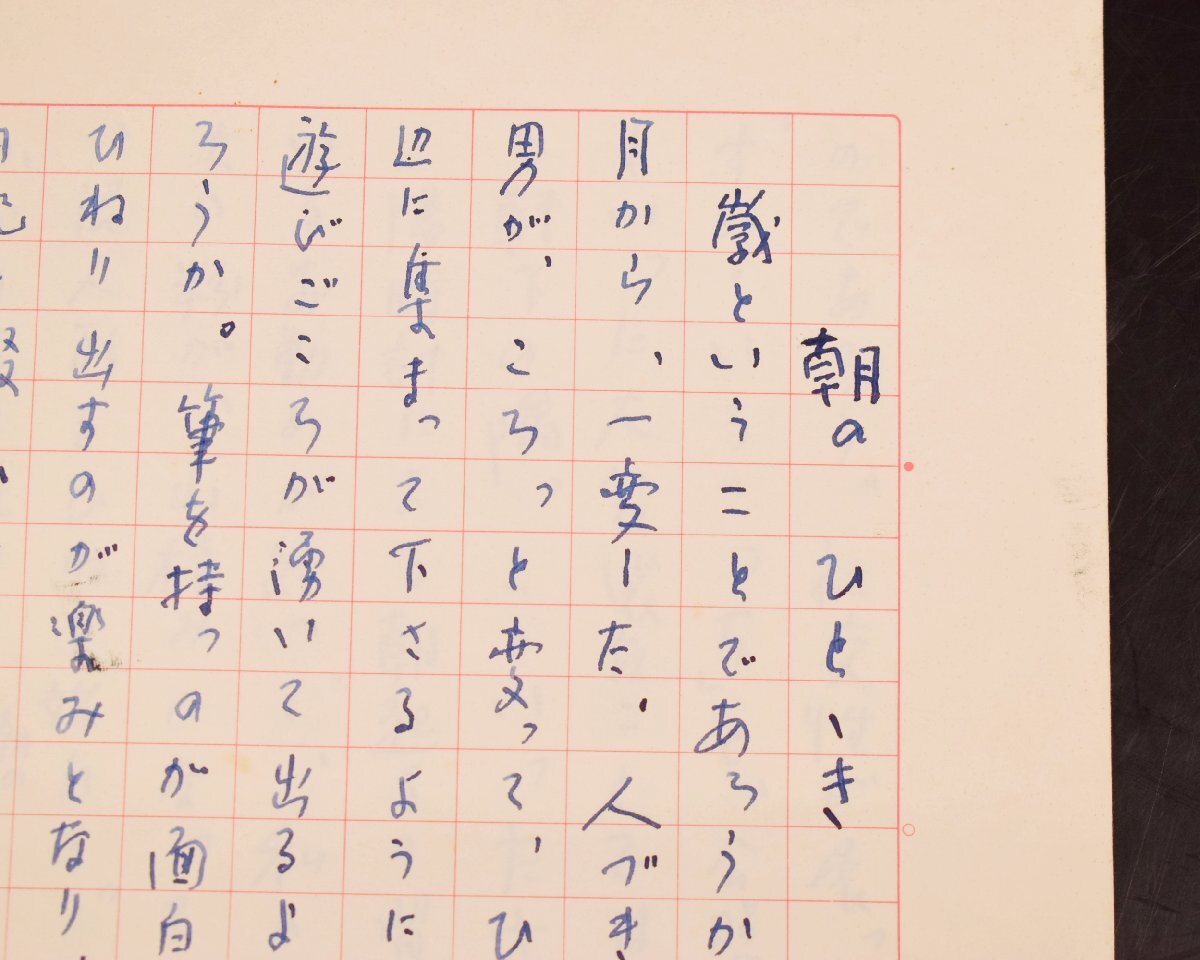 朝の ひといき
歳ということであろうか
月から、一変した、人づき
男が、ころっと変って、ひ
辺に集まって下さるように
遊びごころが湧いて出るよ
ろうか。筆を持つのが面白
ひねり出すのが楽みとなり、